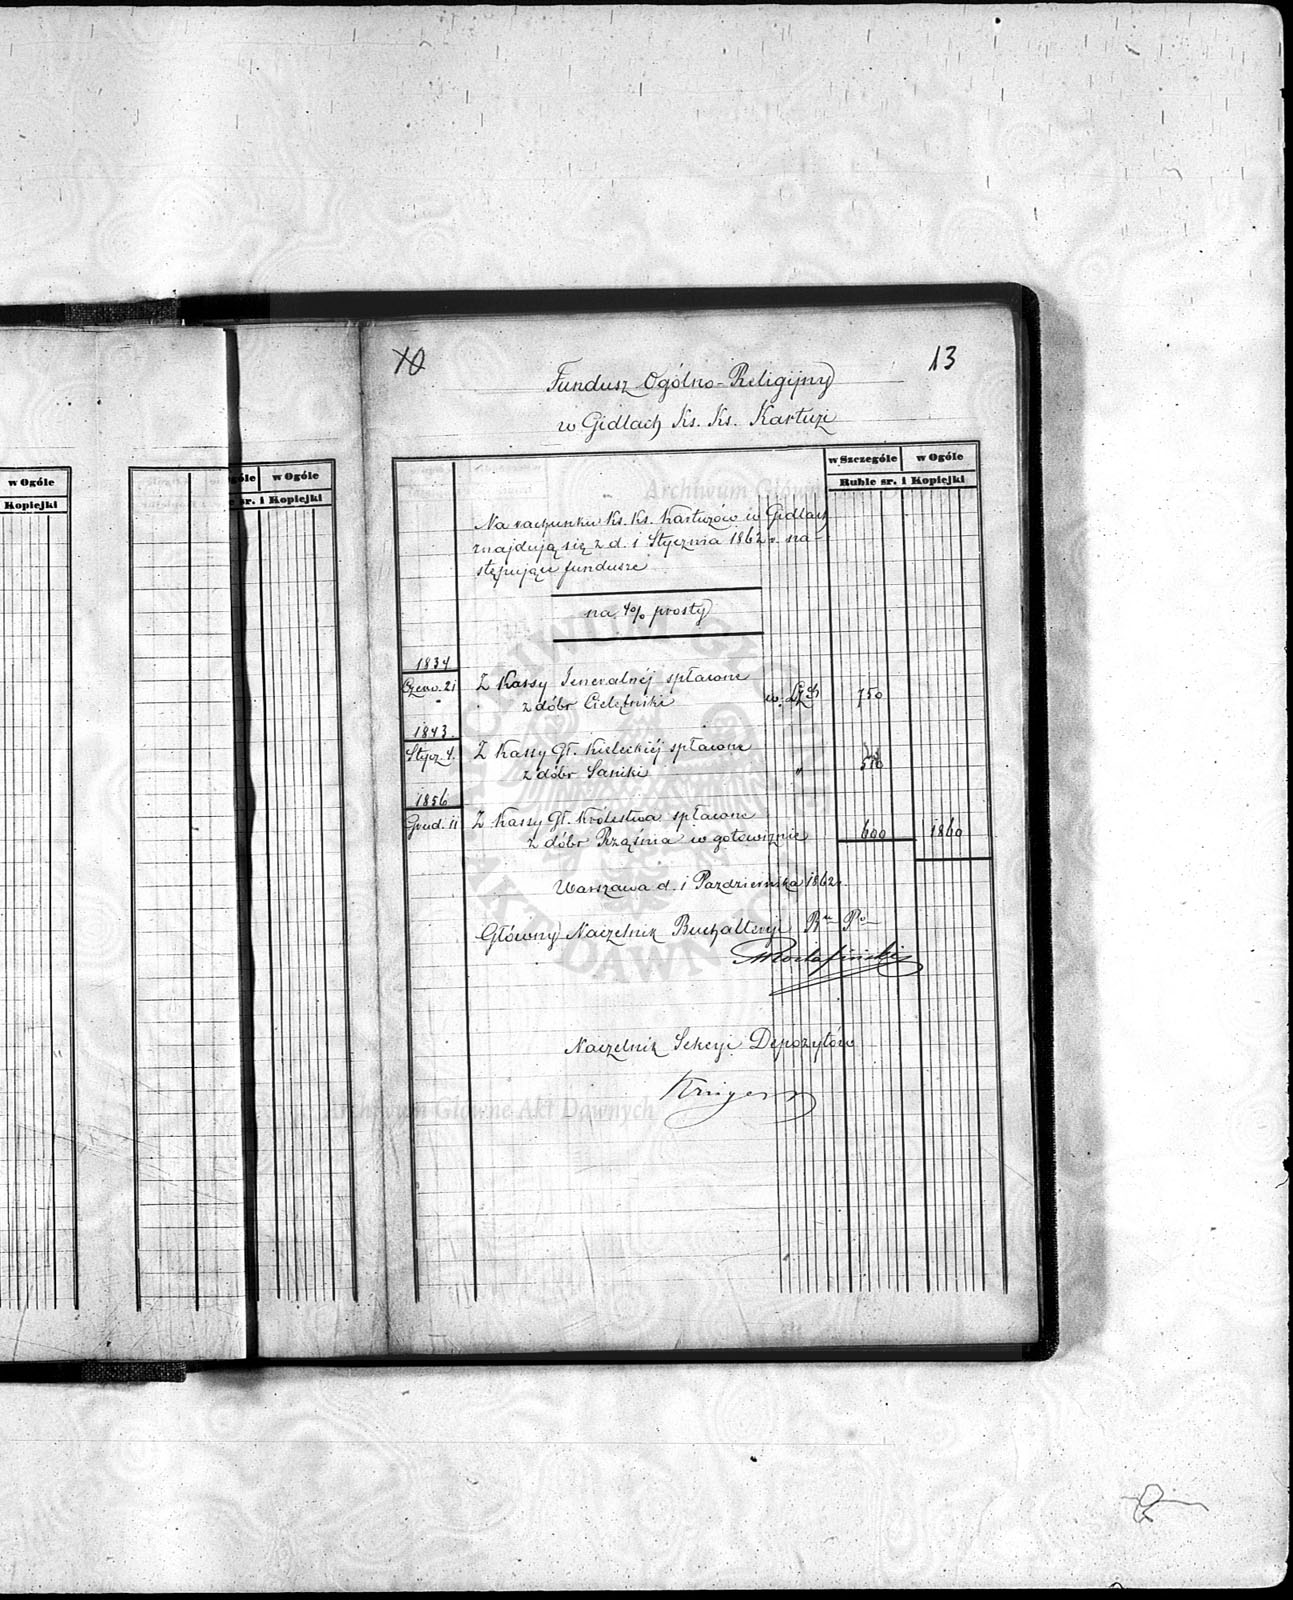 10
13
Fundusz Ogólno-Religijny
w Gidlach Ks. Ks. Kartuzi
w Ogóle
Kopiejki
w Ogóle
sr. i Kopiejki
w Szczególe
w Ogóle
Ruble sr. i Kopiejki
Na rachunku Ks. Ks. Kartuzów w Gidlach
znajdują się z d. 1 Stycznia 1862 r. na-
stępujące fundusze
na 4% prosty
1834
Czerw. 21 Z Kassy Jeneralnéj spłacone
z dóbr Cielętniki w. 750
1843.
Stycz. 4. Z Kassy Gł. Kieleckiéj spłacone
z dóbr Saniki " 510
1856
Grud. 11 Z Kassy Gł. Królestwa spłacone
z dóbr Rząśnia w gotowiznie 600 1860
Warszawa d. 1 Pazdziernika 1862 r.
Główny Naczelnik Buchalteryi
Naczelnik Sekcyi Depozytów
Krüger
ARCHIWUM GŁÓWNE AKT DAWNYCH
Archiwum Główne Akt Dawnych
Archiwum Główne Akt Dawnych